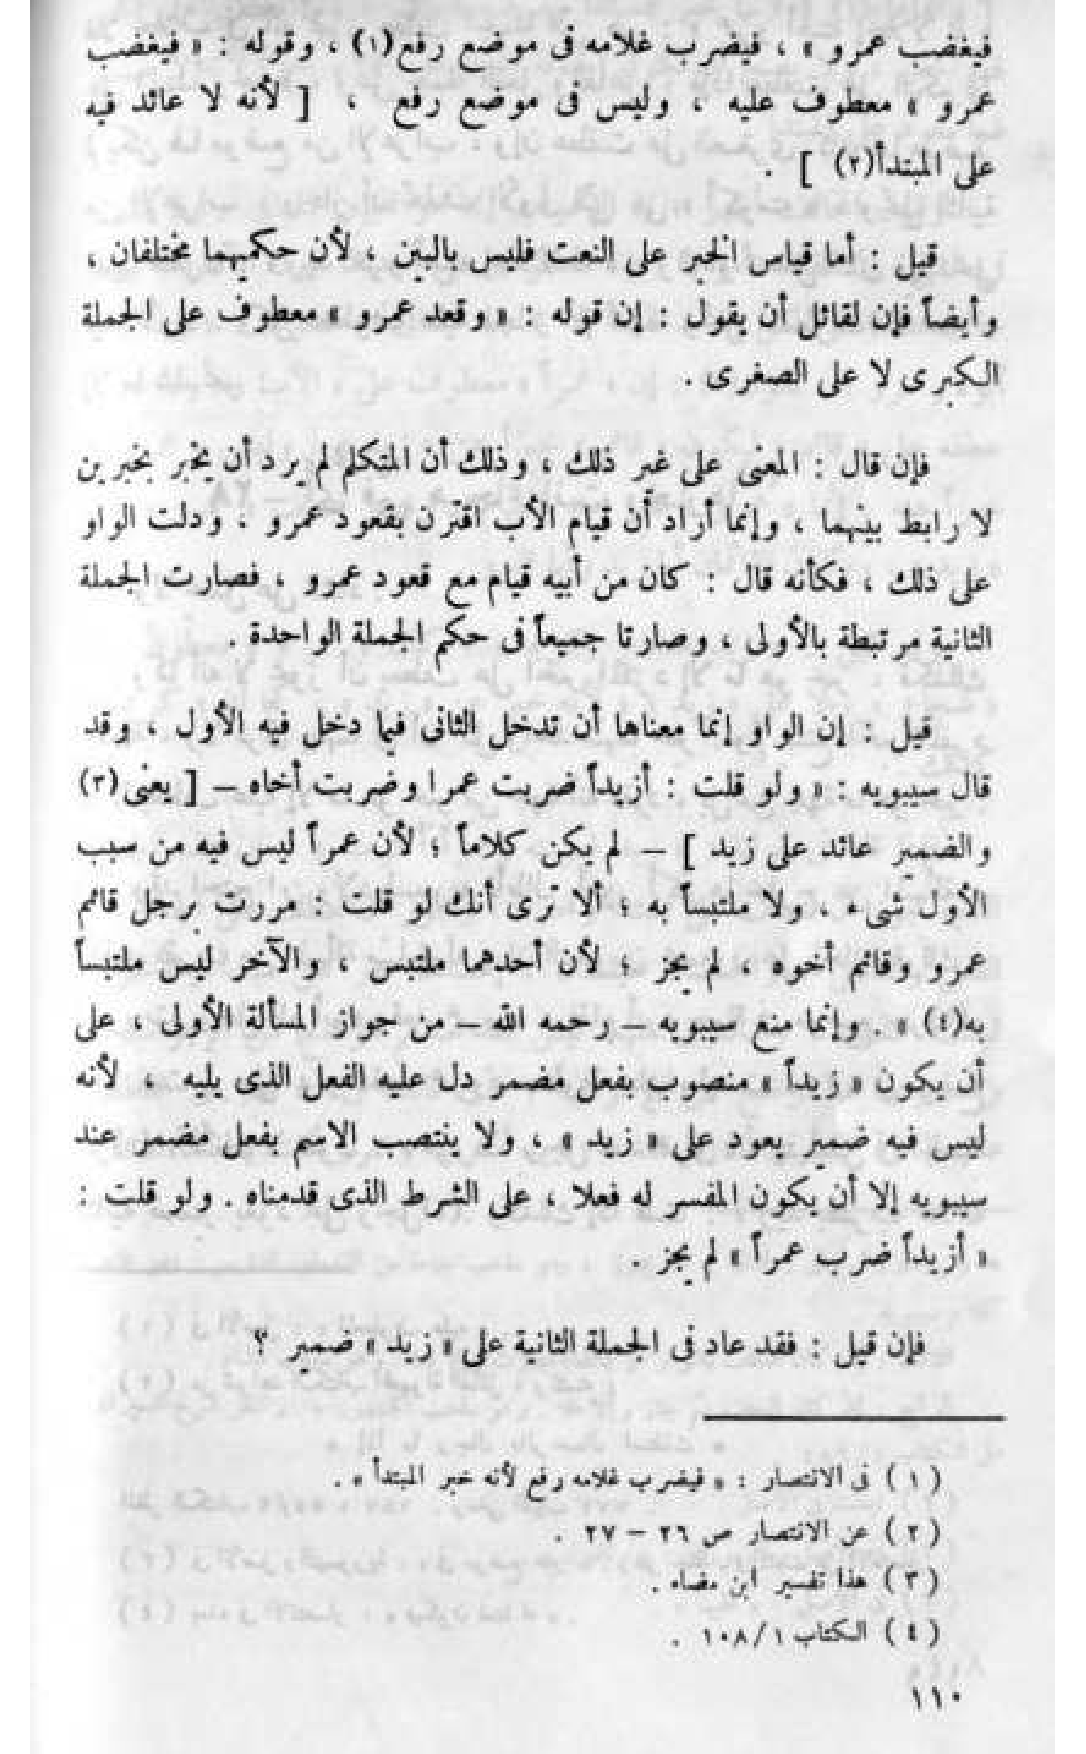 فيغضب عمرو » ، فيضرب غلامه فى موضع رفع(١) ، وقوله : « فيغضب
عمرو » معطوف عليه ، وليس فى موضع رفع ، [ لأنه لا عائد فيه
على المبتدأ(٢) ] .
قيل : أما قياس الخبر على النعت فليس بالبين ، لأن حكميهما مختلفان ،
وأيضاً فإن لقائل أن يقول : إن قوله : « وقعد عمرو » معطوف على الجملة
الكبرى لا على الصغرى .
فإن قال : المعنى على غير ذلك ، وذلك أن المتكلم لم يرد أن يخبر بخبرين
لا رابط بينهما ، وإنما أراد أن قيام الأب اقترن بقعود عمرو ، ودلت الواو
على ذلك ، فكأنه قال : كان من أبيه قيام مع قعود عمرو ، فصارت الجملة
الثانية مرتبطة بالأولى ، وصارتا جميعاً فى حكم الجملة الواحدة .
قيل : إن الواو إنما معناها أن تدخل الثانى فيما دخل فيه الأول ، وقد
قال سيبويه : « ولو قلت : أزيداً ضربت عمرا وضربت أخاه – [ يعنى(٣)
والضمير عائد على زيد ] – لم يكن كلاماً ؛ لأن عمراً ليس فيه من سبب
الأول شىء ، ولا ملتبساً به ؛ ألا ترى أنك لو قلت : مررت برجل قائم
عمرو وقائم أخوه ، لم يجز ؛ لأن أحدهما ملتبس ، والآخر ليس ملتبساً
به(٤) » . وإنما منع سيبويه – رحمه الله – من جواز المسألة الأولى ، على
أن يكون « زيداً » منصوب بفعل مضمر دل عليه الفعل الذى يليه ، لأنه
ليس فيه ضمير يعود على « زيد » ، ولا ينتصب الاسم بفعل مضمر عند
سيبويه إلا أن يكون المفسر له فعلا ، على الشرط الذى قدمناه . ولو قلت :
« أزيداً ضرب عمراً » لم يجز .
فإن قيل : فقد عاد فى الجملة الثانية على « زيد » ضمير ؟
( ١ ) فى الانتصار : « فيضرب غلامه رفع لأنه خبر المبتدأ » .
( ٢ ) عن الانتصار ص ٢٦ – ٢٧ .
( ٣ ) هذا تفسير ابن مضاء .
( ٤ ) الكتاب ١/‏١٠٨ .
١١٠